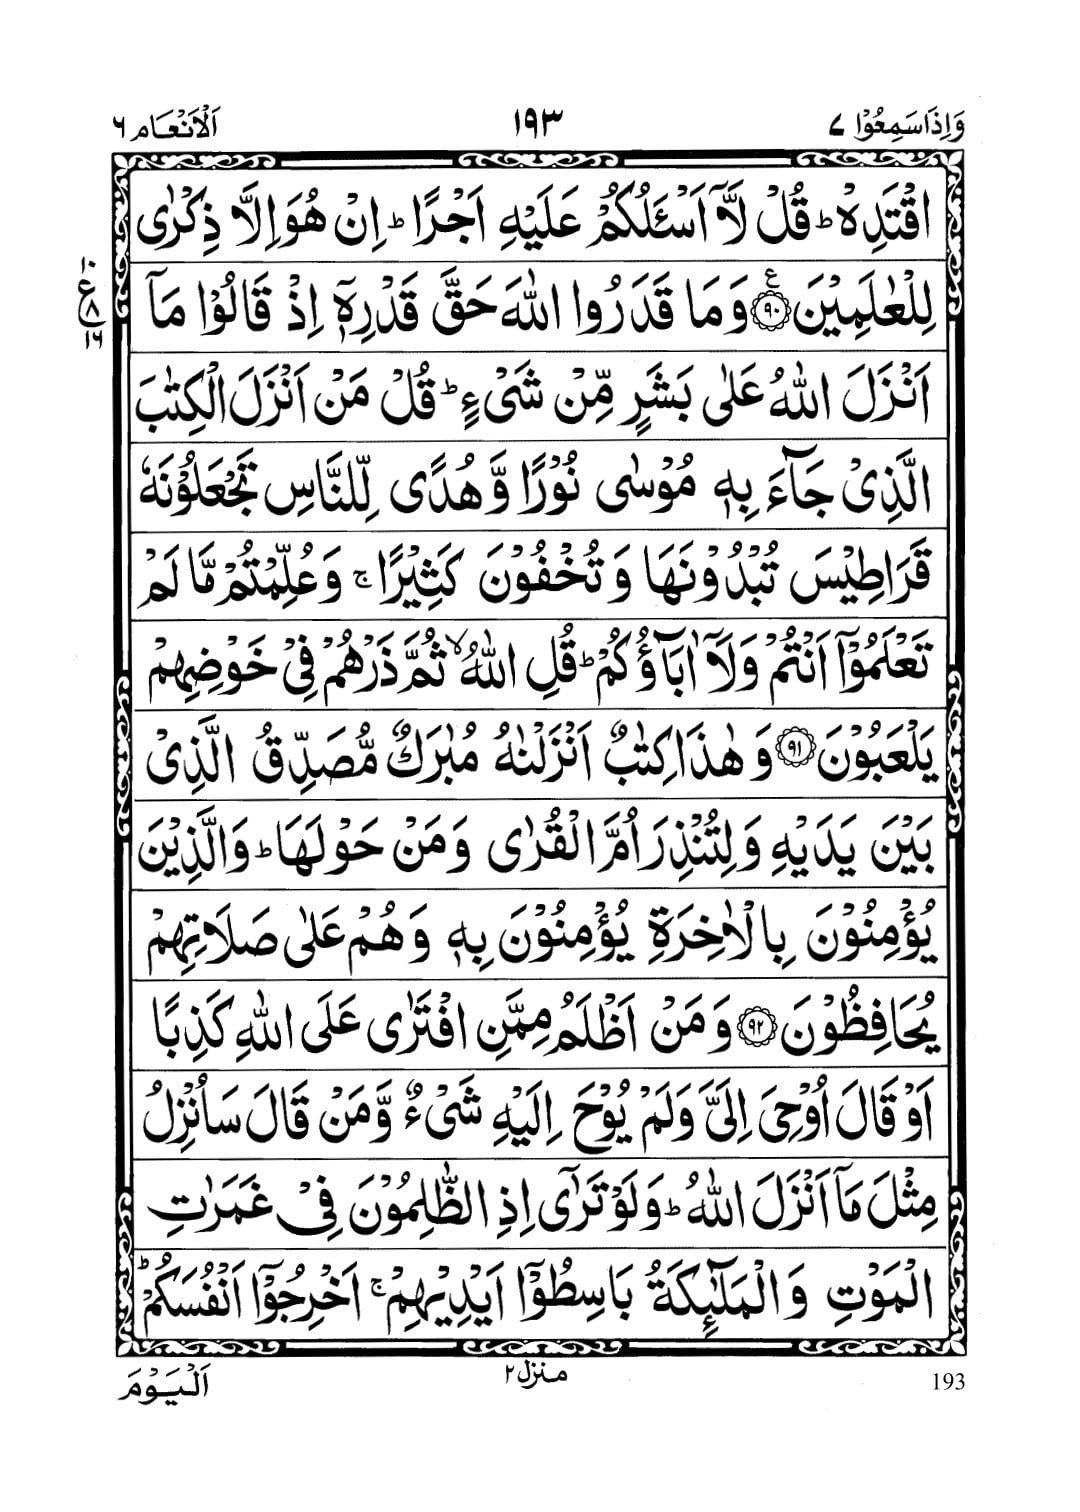 وَاِذَاسَمِعُوۡا ٧
١٩٣
اَلۡاَنۡعَام ٦
اقۡتَدِهۡ ؕ قُلۡ لَّاۤ اَسۡـَٔلُكُمۡ عَلَيۡهِ اَجۡرًا ؕ اِنۡ هُوَ اِلَّا ذِكۡرٰى
لِلۡعٰلَمِيۡنَ ﴿٩٠﴾ ع وَمَا قَدَرُوا اللّٰهَ حَقَّ قَدۡرِهٖۤ اِذۡ قَالُوۡا مَاۤ
١٠
ع
٨
١٦
اَنۡزَلَ اللّٰهُ عَلٰى بَشَرٍ مِّنۡ شَىۡءٍ ؕ قُلۡ مَنۡ اَنۡزَلَ الۡكِتٰبَ
الَّذِىۡ جَآءَ بِهٖ مُوۡسٰى نُوۡرًا وَّهُدًى لِّلنَّاسِ تَجۡعَلُوۡنَهٗ
قَرَاطِيۡسَ تُبۡدُوۡنَهَا وَتُخۡفُوۡنَ كَثِيۡرًا ۚ وَعُلِّمۡتُمۡ مَّا لَمۡ
تَعۡلَمُوۡۤا اَنۡتُمۡ وَلَاۤ اٰبَآؤُكُمۡ ؕ قُلِ اللّٰهُ ۙ ثُمَّ ذَرۡهُمۡ فِىۡ خَوۡضِهِمۡ
يَلۡعَبُوۡنَ ﴿٩١﴾ وَهٰذَا كِتٰبٌ اَنۡزَلۡنٰهُ مُبٰرَكٌ مُّصَدِّقُ الَّذِىۡ
بَيۡنَ يَدَيۡهِ وَلِتُنۡذِرَ اُمَّ الۡقُرٰى وَمَنۡ حَوۡلَهَا ؕ وَالَّذِيۡنَ
يُؤۡمِنُوۡنَ بِالۡاٰخِرَةِ يُؤۡمِنُوۡنَ بِهٖ وَهُمۡ عَلٰى صَلَاتِهِمۡ
يُحَافِظُوۡنَ ﴿٩٢﴾ وَمَنۡ اَظۡلَمُ مِمَّنِ افۡتَرٰى عَلَى اللّٰهِ كَذِبًا
اَوۡ قَالَ اُوۡحِىَ اِلَىَّ وَلَمۡ يُوۡحَ اِلَيۡهِ شَىۡءٌ وَّمَنۡ قَالَ سَاُنۡزِلُ
مِثۡلَ مَاۤ اَنۡزَلَ اللّٰهُ ؕ وَلَوۡ تَرٰٓى اِذِ الظّٰلِمُوۡنَ فِىۡ غَمَرٰتِ
الۡمَوۡتِ وَالۡمَلٰٓٮِٕكَةُ بَاسِطُوۡۤا اَيۡدِيۡهِمۡ ۚ اَخۡرِجُوۡۤا اَنۡفُسَكُمۡ ؕ
193
منزل ٢
اَلۡيَوۡمَ